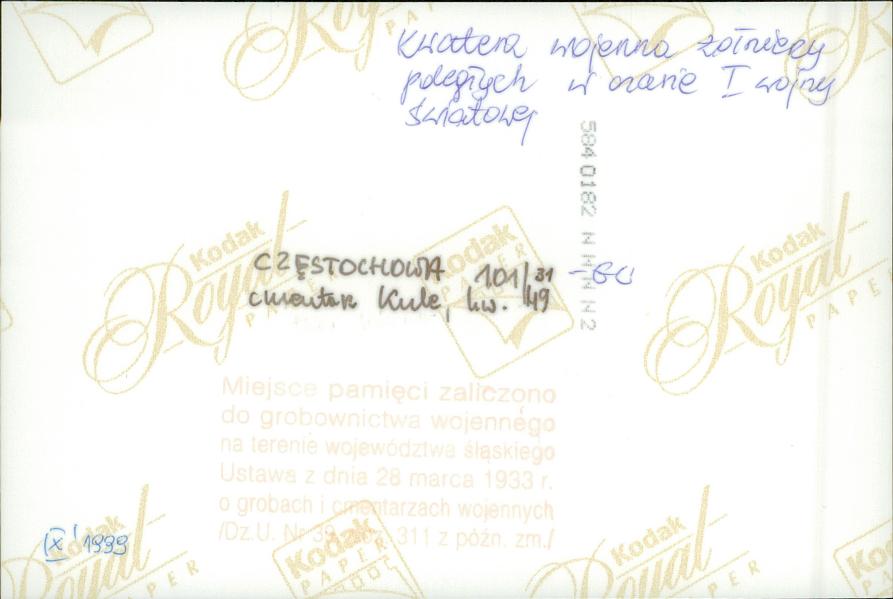 Kwatera wojenna żołnierzy
poległych w czasie I wojny
światowej
5840182 N N N N 2
CZĘSTOCHOWA 101/31
cmentarz Kule, kw. 49
Miejsce pamięci zaliczono
do grobownictwa wojennego
na terenie województwa śląskiego
Ustawa z dnia 28 marca 1933 r.
o grobach i cmentarzach wojennych
/Dz.U. Nr 39, poz. 311 z późn. zm./
IX' 1999
Kodak
Royal
PAPER